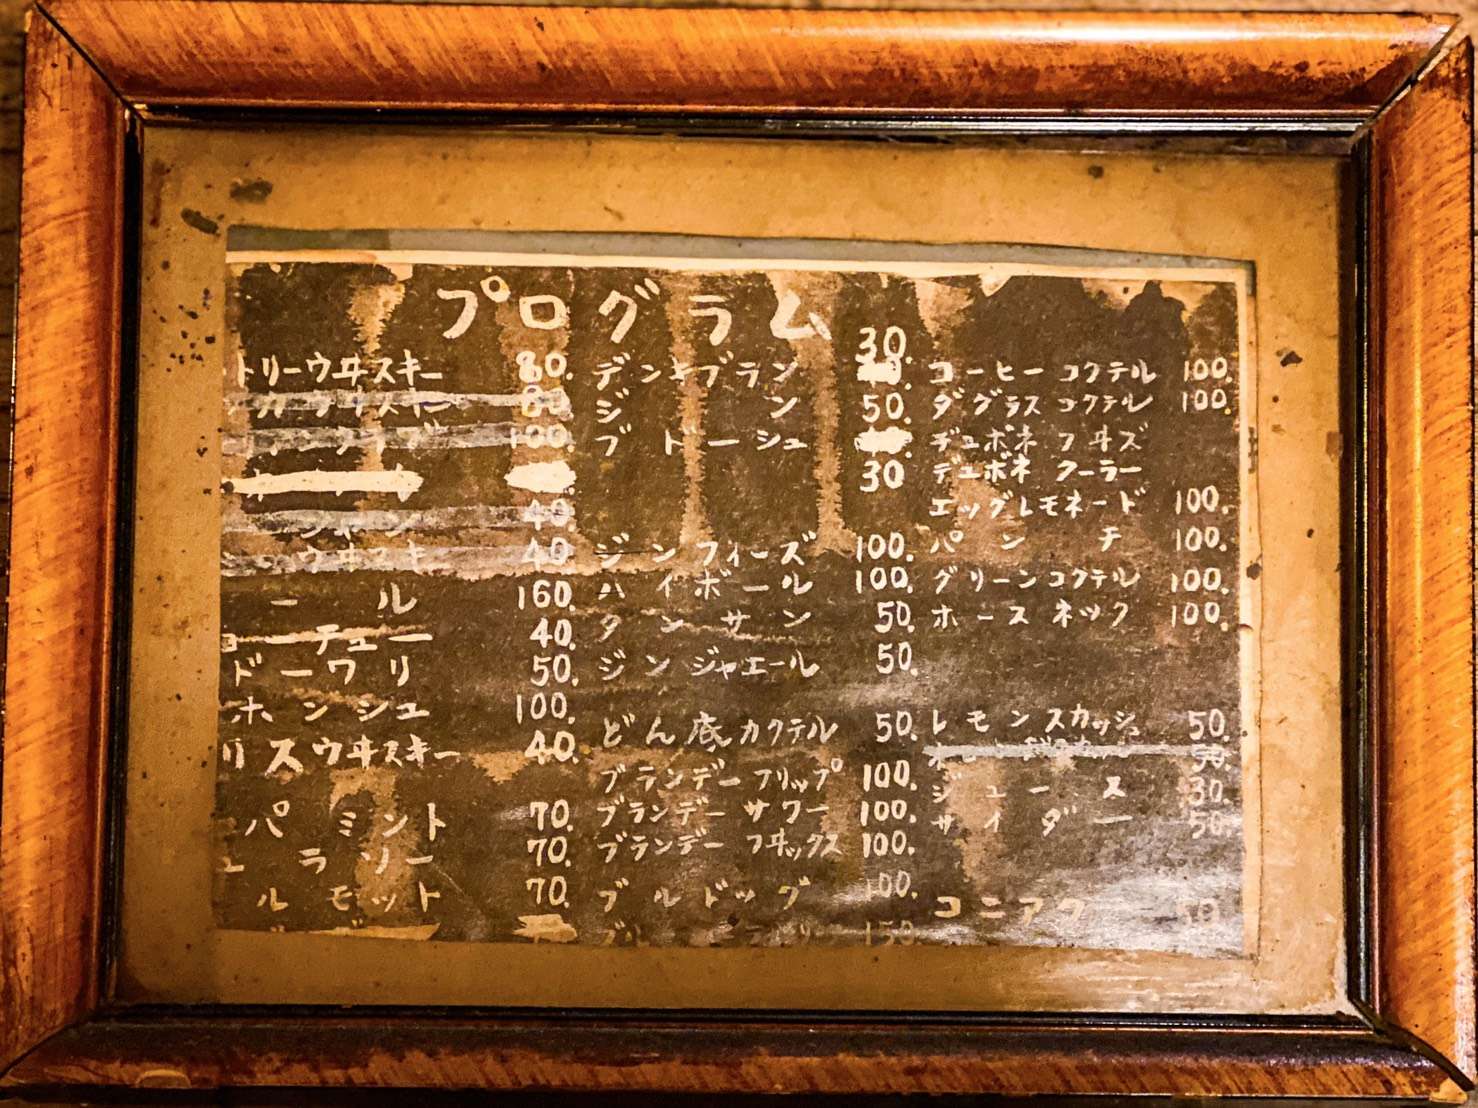 プログラム
トリーウヰスキー 80.
100.
40.
ウヰスキ 40.
ール 160.
ーチュー 40.
ドーワリ 50.
ホンシュ 100.
リスウヰスキー 40.
パミント 70.
ラソー 70.
ルモット 70.
30.
デンキブラン
ジン 50.
ブドーシュ
30
ジンフィーズ 100.
ハイボール 100.
タンサン 50.
ジンジャエール 50.
どん底カクテル 50.
ブランデーフリップ 100.
ブランデーサワー 100.
ブランデーフヰックス 100.
ブルドッグ 100.
150.
コーヒーコクテル 100.
ダグラスコクテル 100.
デュボネフヰズ
デュボネクーラー
エッグレモネード 100.
パンチ 100.
グリーンコクテル 100.
ホースネック 100.
レモンスカッシュ 50.
50.
ジュース 30.
サイダー 50.
コニアク